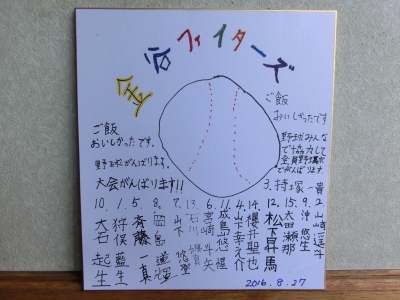 金谷ファイターズ
ご飯
おいしかったです。
野球がんばります。
大会がんばります!!
ご飯
おいしかったです
野球みんな
で協力して
全員野球
でがんばります。
3. 持塚一貴
2. 山崎遥斗
9. 沖悠生
15. 太田瀬那
12. 松下昇馬
14. 櫻井聖也
4. 山下幸之介
11. 成島悠堪
6. 宮崎斗矢
13. 石川
7. 山下悠登
8. 岡島
5. 斉藤一真
1. 狩俣藍生
10. 大石起生
2016.8.27